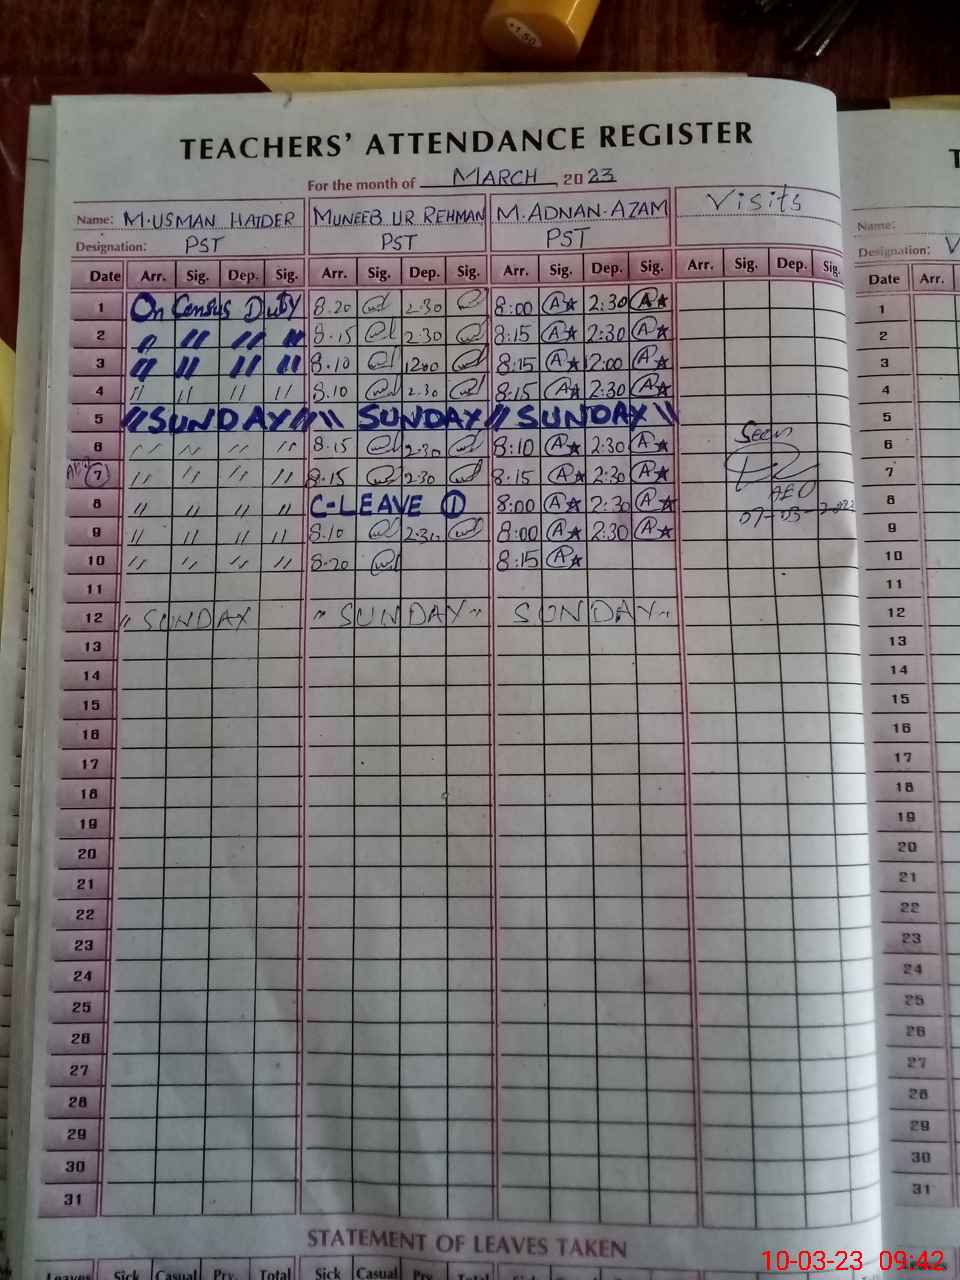 +1.50
TEACHERS' ATTENDANCE REGISTER
For the month of MARCH, 2023
Name: M.USMAN HAIDER MUNEEB UR REHMAN M.ADNAN.AZAM Visits Name:
Designation: PST PST PST Designation:
Date Arr. Sig. Dep. Sig. Arr. Sig. Dep. Sig. Arr. Sig. Dep. Sig. Arr. Sig. Dep. Sig. Date Arr.
1 On Census Duty 8.20 2.30 8:00 A 2:30 A 1
2 " " " " 8.15 2.30 8:15 A 2:30 A 2
3 " " " " 8.10 1200 8:15 A 12:00 A 3
4 " " " " 8.10 2.30 8:15 A 2:30 A 4
5 "SUNDAY" " SUNDAY " SUNDAY " 5
6 " " " " 8.15 2.30 8:10 A 2:30 A Seen 6
7 " " " " 8.15 2.30 8:15 A 2:30 A 7
8 " " " " C-LEAVE 1 8:00 A 2:30 A AEO 8
9 " " " " 8.10 2.30 9:00 A 2:30 A 07-03-2023 9
10 " " " " 8.20 8:15 A 10
11 11
12 " SUNDAY " SUNDAY " SUNDAY " 12
13 13
14 14
15 15
16 16
17 17
18 18
19 19
20 20
21 21
22 22
23 23
24 24
25 25
26 26
27 27
28 28
29 29
30 30
31 31
STATEMENT OF LEAVES TAKEN
Leaves Sick Casual Prv. Total Sick Casual Prv. Total
10-03-23 09:42